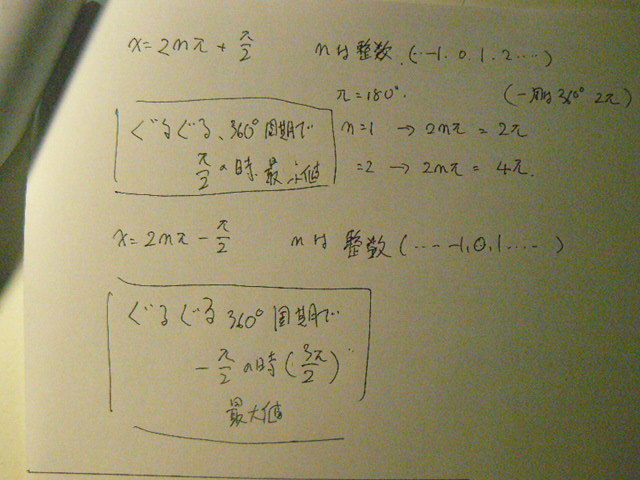 x=2nπ+π/2 nは整数.(…-1.0.1.2.…)
π=180°. (一周は360° 2π)
ぐるぐる、360°周期で
π/2の時.最小値
n=1 → 2nπ = 2π
=2 → 2nπ = 4π.
x=2nπ-π/2 nは整数(…-1,0,1…)
ぐるぐる360°周期で
-π/2の時(3π/2)
最大値